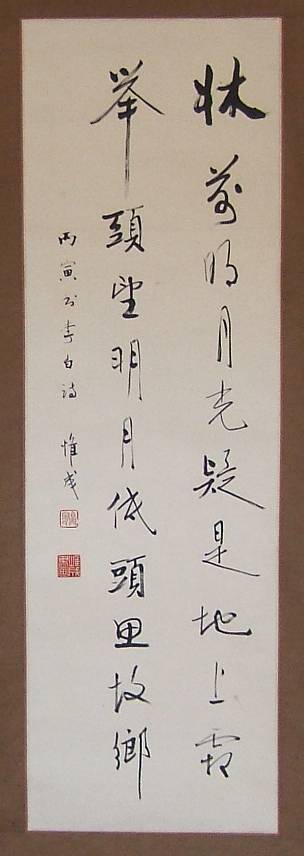 牀前明月光疑是地上霜
舉頭望明月低頭思故鄉
丙寅書李白詩 惟成